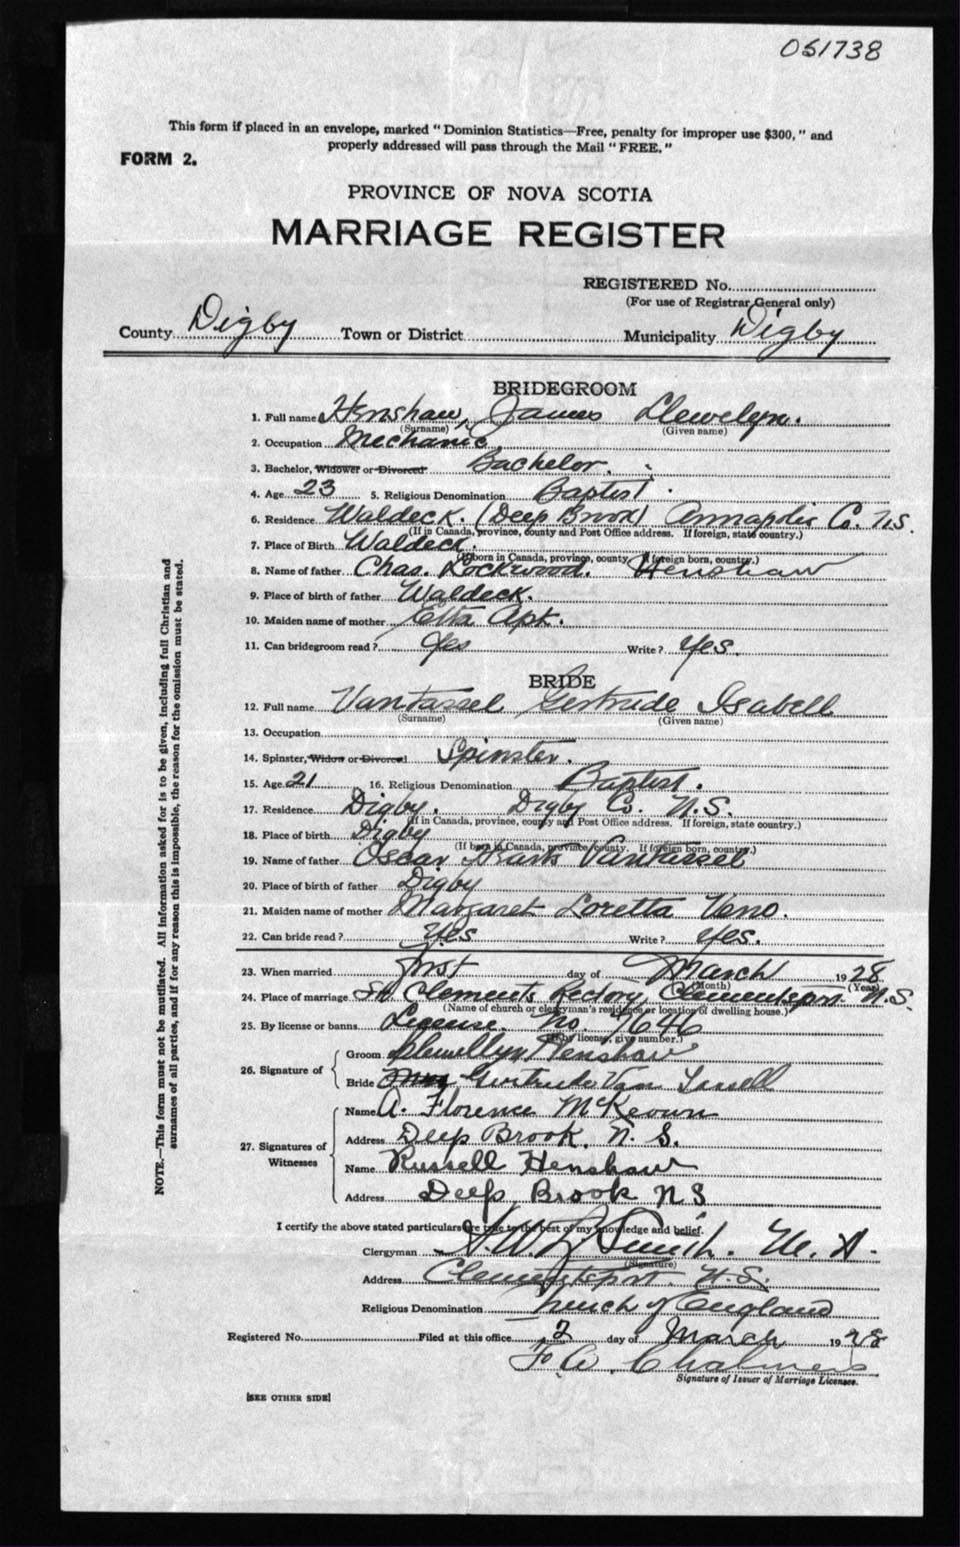 051738
This form if placed in an envelope, marked "Dominion Statistics—Free, penalty for improper use $300," and
properly addressed will pass through the Mail "FREE."
FORM 2.
PROVINCE OF NOVA SCOTIA
MARRIAGE REGISTER
REGISTERED No.
(For use of Registrar General only)
County Digby Town or District Municipality Digby
BRIDEGROOM
1. Full name Henshaw, James Llewelyn.
(Surname) (Given name)
2. Occupation Mechanic.
3. Bachelor, Widower or Divorced Bachelor.
4. Age 23 5. Religious Denomination Baptist.
6. Residence Waldeck. (Deep Brook) Annapolis Co. N.S.
(If in Canada, province, county and Post Office address. If foreign, state country.)
7. Place of Birth Waldeck.
(If born in Canada, province, county. If foreign born, country.)
8. Name of father Chas. Lockwood. Henshaw
9. Place of birth of father Waldeck.
10. Maiden name of mother Etta Apt.
11. Can bridegroom read? Yes Write? Yes.
BRIDE
12. Full name Vantassel Gertrude Isabell
(Surname) (Given name)
13. Occupation
14. Spinster, Widow or Divorced Spinster.
15. Age 21 16. Religious Denomination Baptist.
17. Residence Digby. Digby Co. N.S.
(If in Canada, province, county and Post Office address. If foreign, state country.)
18. Place of birth Digby
(If born in Canada, province/county. If foreign born, country.)
19. Name of father Oscar Vantassel
20. Place of birth of father Digby
21. Maiden name of mother Margaret Loretta Veno.
22. Can bride read? Yes Write? Yes.
23. When married first day of March 1928
(Month) (Year)
24. Place of marriage St. Clements Rectory, Clementsport. N.S.
(Name of church or clergyman's residence or location of dwelling house.)
25. By license or banns License. No 7646
(If by license, give number.)
26. Signature of Groom Llewellyn Henshaw
Bride Gertrude Van Tassell
27. Signatures of Witnesses
Name A. Florence McKeown
Address Deep Brook, N. S.
Name Russell Henshaw
Address Deep Brook N S
I certify the above stated particulars are true to the best of my knowledge and belief.
Clergyman Smith.
(Signature)
Address Clementsport. N.S.
Religious Denomination Church of England
Registered No. Filed at this office 2 day of March 1928
Chalmers
Signature of Issuer of Marriage Licenses.
[SEE OTHER SIDE]
NOTE.—This form must not be mutilated. All information asked for is to be given, including full Christian and
surnames of all parties, and if for any reason this is impossible, the reason for the omission must be stated.